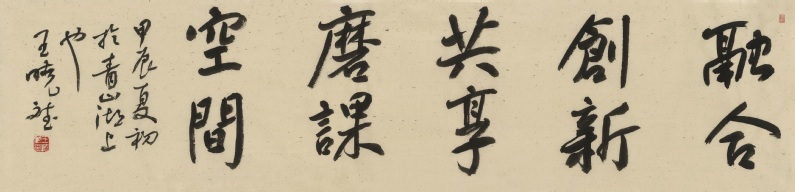 融合
創新
共享
磨課
空間
甲辰夏初
於青山湖上
也
王曉斌